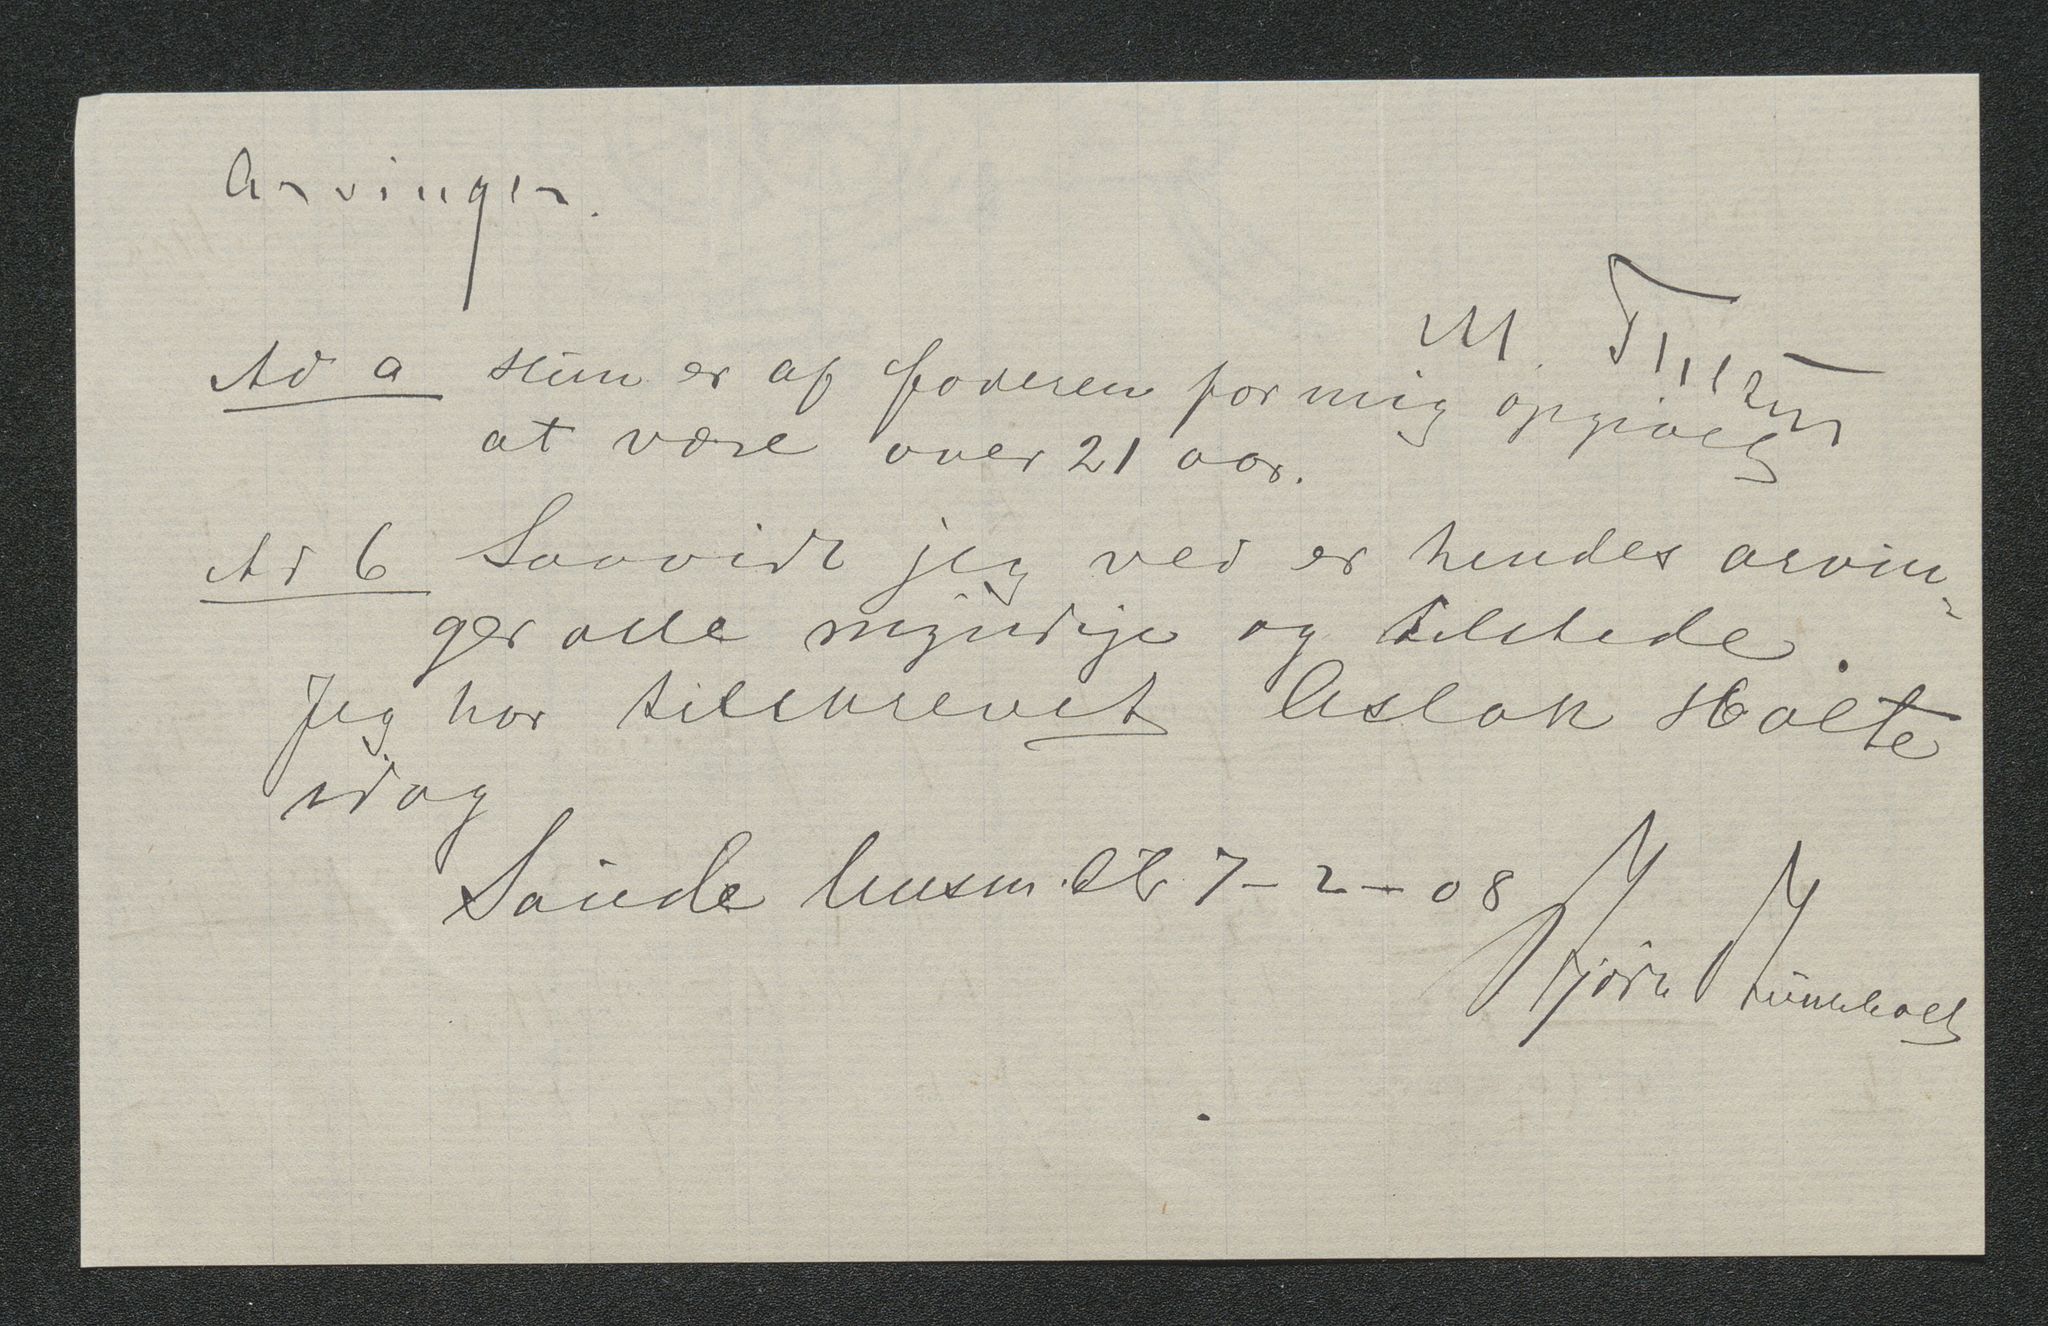 Arvinger.
M.
Ad a Hun er af faderen for mig opgivet
at være over 21 aar.
Ad b Saavidt jeg ved er hendes arvin-
ger alle myndige og tilstede.
Jeg har tilskrevet Aslak Holte
idag
Saude lensm. 7-2-08